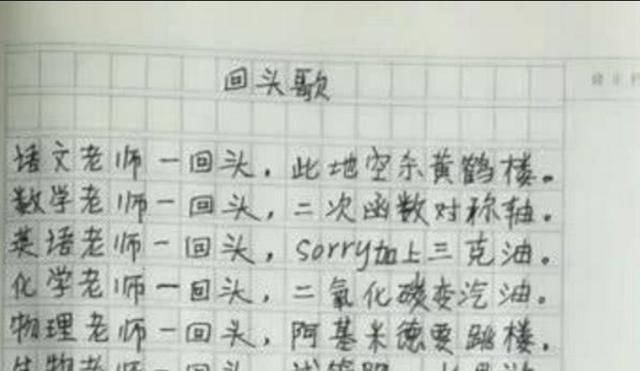 回头歌
语文老师一回头，此地空余黄鹤楼。
数学老师一回头，二次函数对称轴。
英语老师一回头，sorry加上三克油。
化学老师一回头，二氧化碳变汽油。
物理老师一回头，阿基米德要跳楼。
生物老师一回头，试管